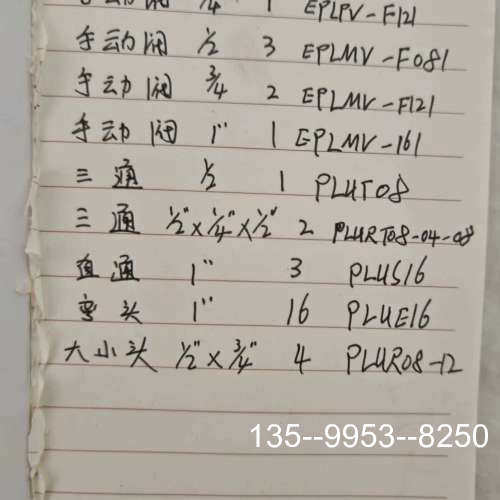 手动阀 1/4 1 EPLPV-F121
手动阀 1/2 3 EPLMV-F081
手动阀 3/4 2 EPLMV-F121
手动阀 1" 1 EPLMV-161
三通 1/2 1 PLUT08
三通 1/2"×1/4"×1/2" 2 PLURT08-04-08
直通 1" 3 PLUS16
弯头 1" 16 PLUE16
大小头 1/2"×3/4" 4 PLUR08-12
135--9953--8250